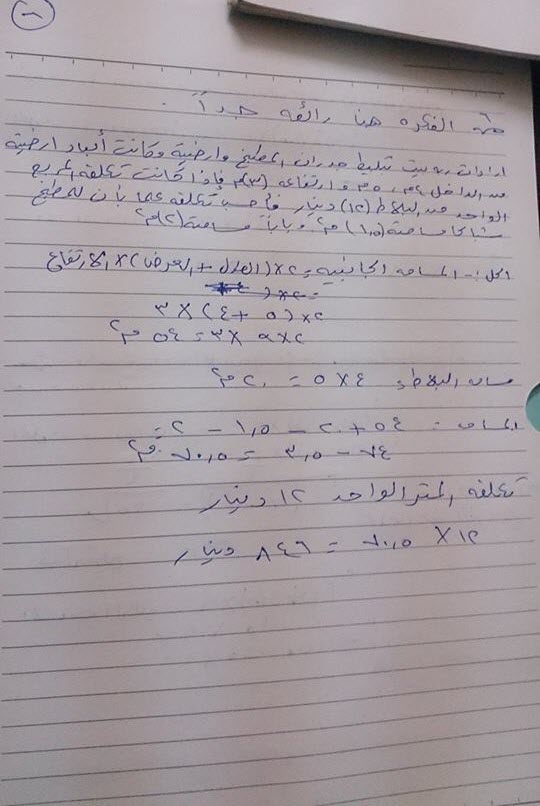 ١
الفكره هنا رائعه جداً
ارادت ربه بيت تبليط جدران المطبخ وارضيتة وكانت أبعاد ارضيتة
من الداخل ٤م، ٥م وارتفاعه (٣)م فإذا كانت تكلفه المربع
الواحد من البلاط (١٢) دينار فأحسب تكلفه علما بأن للمطبخ
شباكا مساحته (١,٥)م٢ وباباً مساحته (٢)م٢
الحل:- المساحه الجانبيه = ٢×(الطول + العرض)× الارتفاع
٢×(٥ + ٤) × ٣
٢×٩ ×٣ = ٥٤ م٢
مساحه البلاط = ٤×٥ = ٢٠ م٢
المساحه = ٥٤ + ٢٠ - ١,٥ - ٢ =
٧٤ - ٣,٥ = ٧٠,٥ م٢
تكلفه المتر الواحد ١٢ دينار
١٢ × ٧٠,٥ = ٨٤٦ دينار